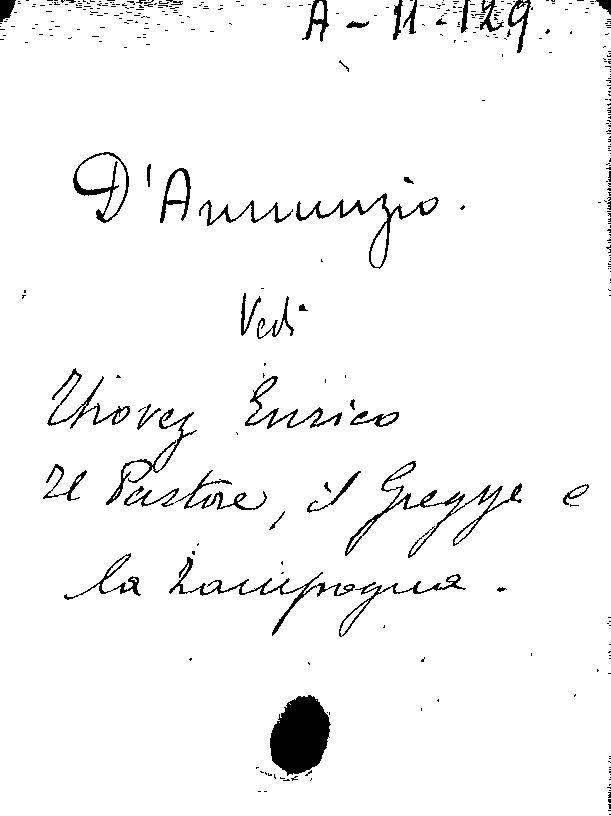 A - 11 - 129.
D'Annunzio.
Vedi
Thovez Enrico
Il Pastore, il Gregge e
la Zampogna.